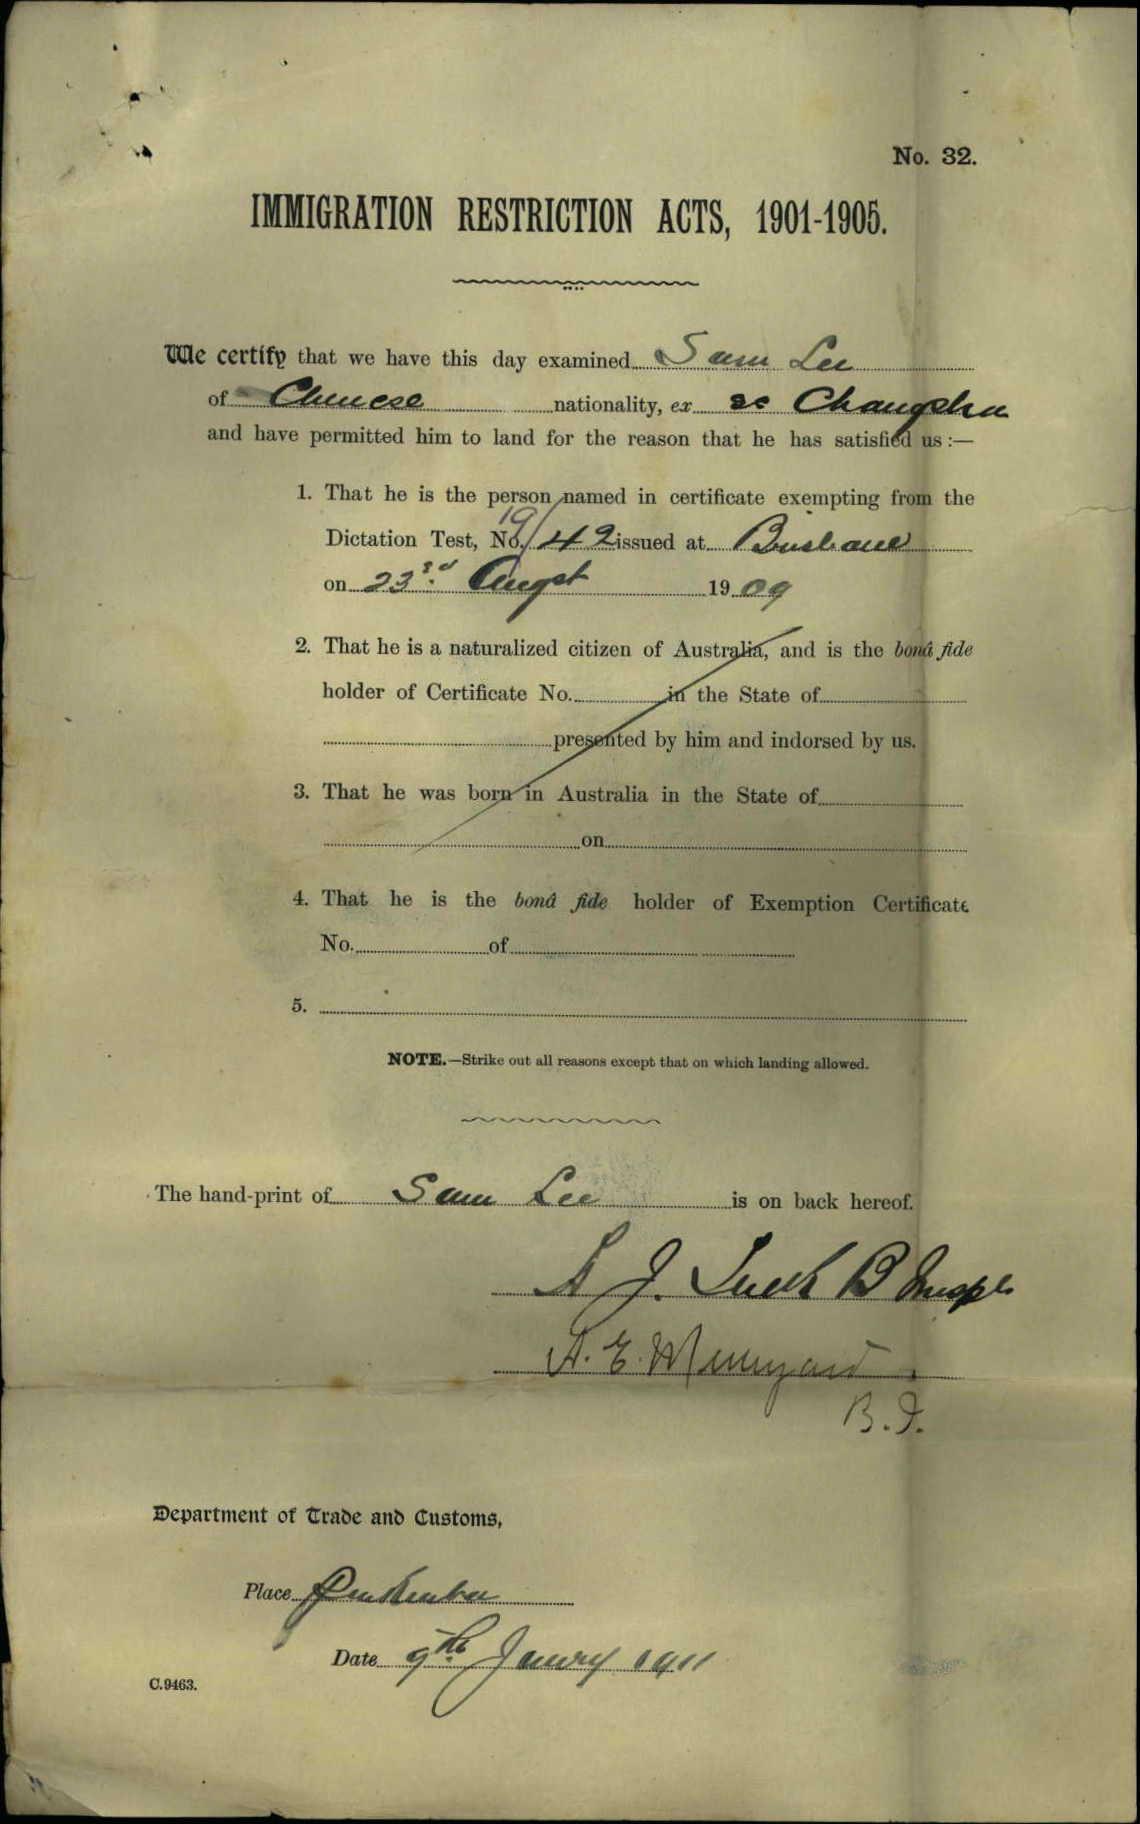 No. 32.
IMMIGRATION RESTRICTION ACTS, 1901-1905.
We certify that we have this day examined Sam Lee
of Chinese nationality, ex ss Changsha
and have permitted him to land for the reason that he has satisfied us :—
1. That he is the person named in certificate exempting from the
Dictation Test, No. 19/42 issued at Brisbane
on 23rd Augst 1909
2. That he is a naturalized citizen of Australia, and is the bonâ fide
holder of Certificate No. in the State of
presented by him and indorsed by us.
3. That he was born in Australia in the State of
on
4. That he is the bonâ fide holder of Exemption Certificate
No. of
5.
NOTE.—Strike out all reasons except that on which landing allowed.
The hand-print of Sam Lee is on back hereof.
J. B
A. E.
B.I.
Department of Trade and Customs,
Place Pinkenba
Date 9th Janry 1911
C.9463.